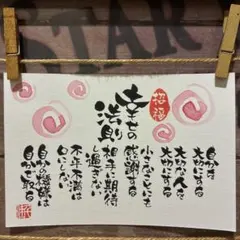 STAR
招福
幸せの
法則
自分を
大切にする
大切な人を
大切にする
小さなことにも
感謝する
相手に期待
し過ぎない
不平不満は
口にしない
自分の機嫌は
自分で取る